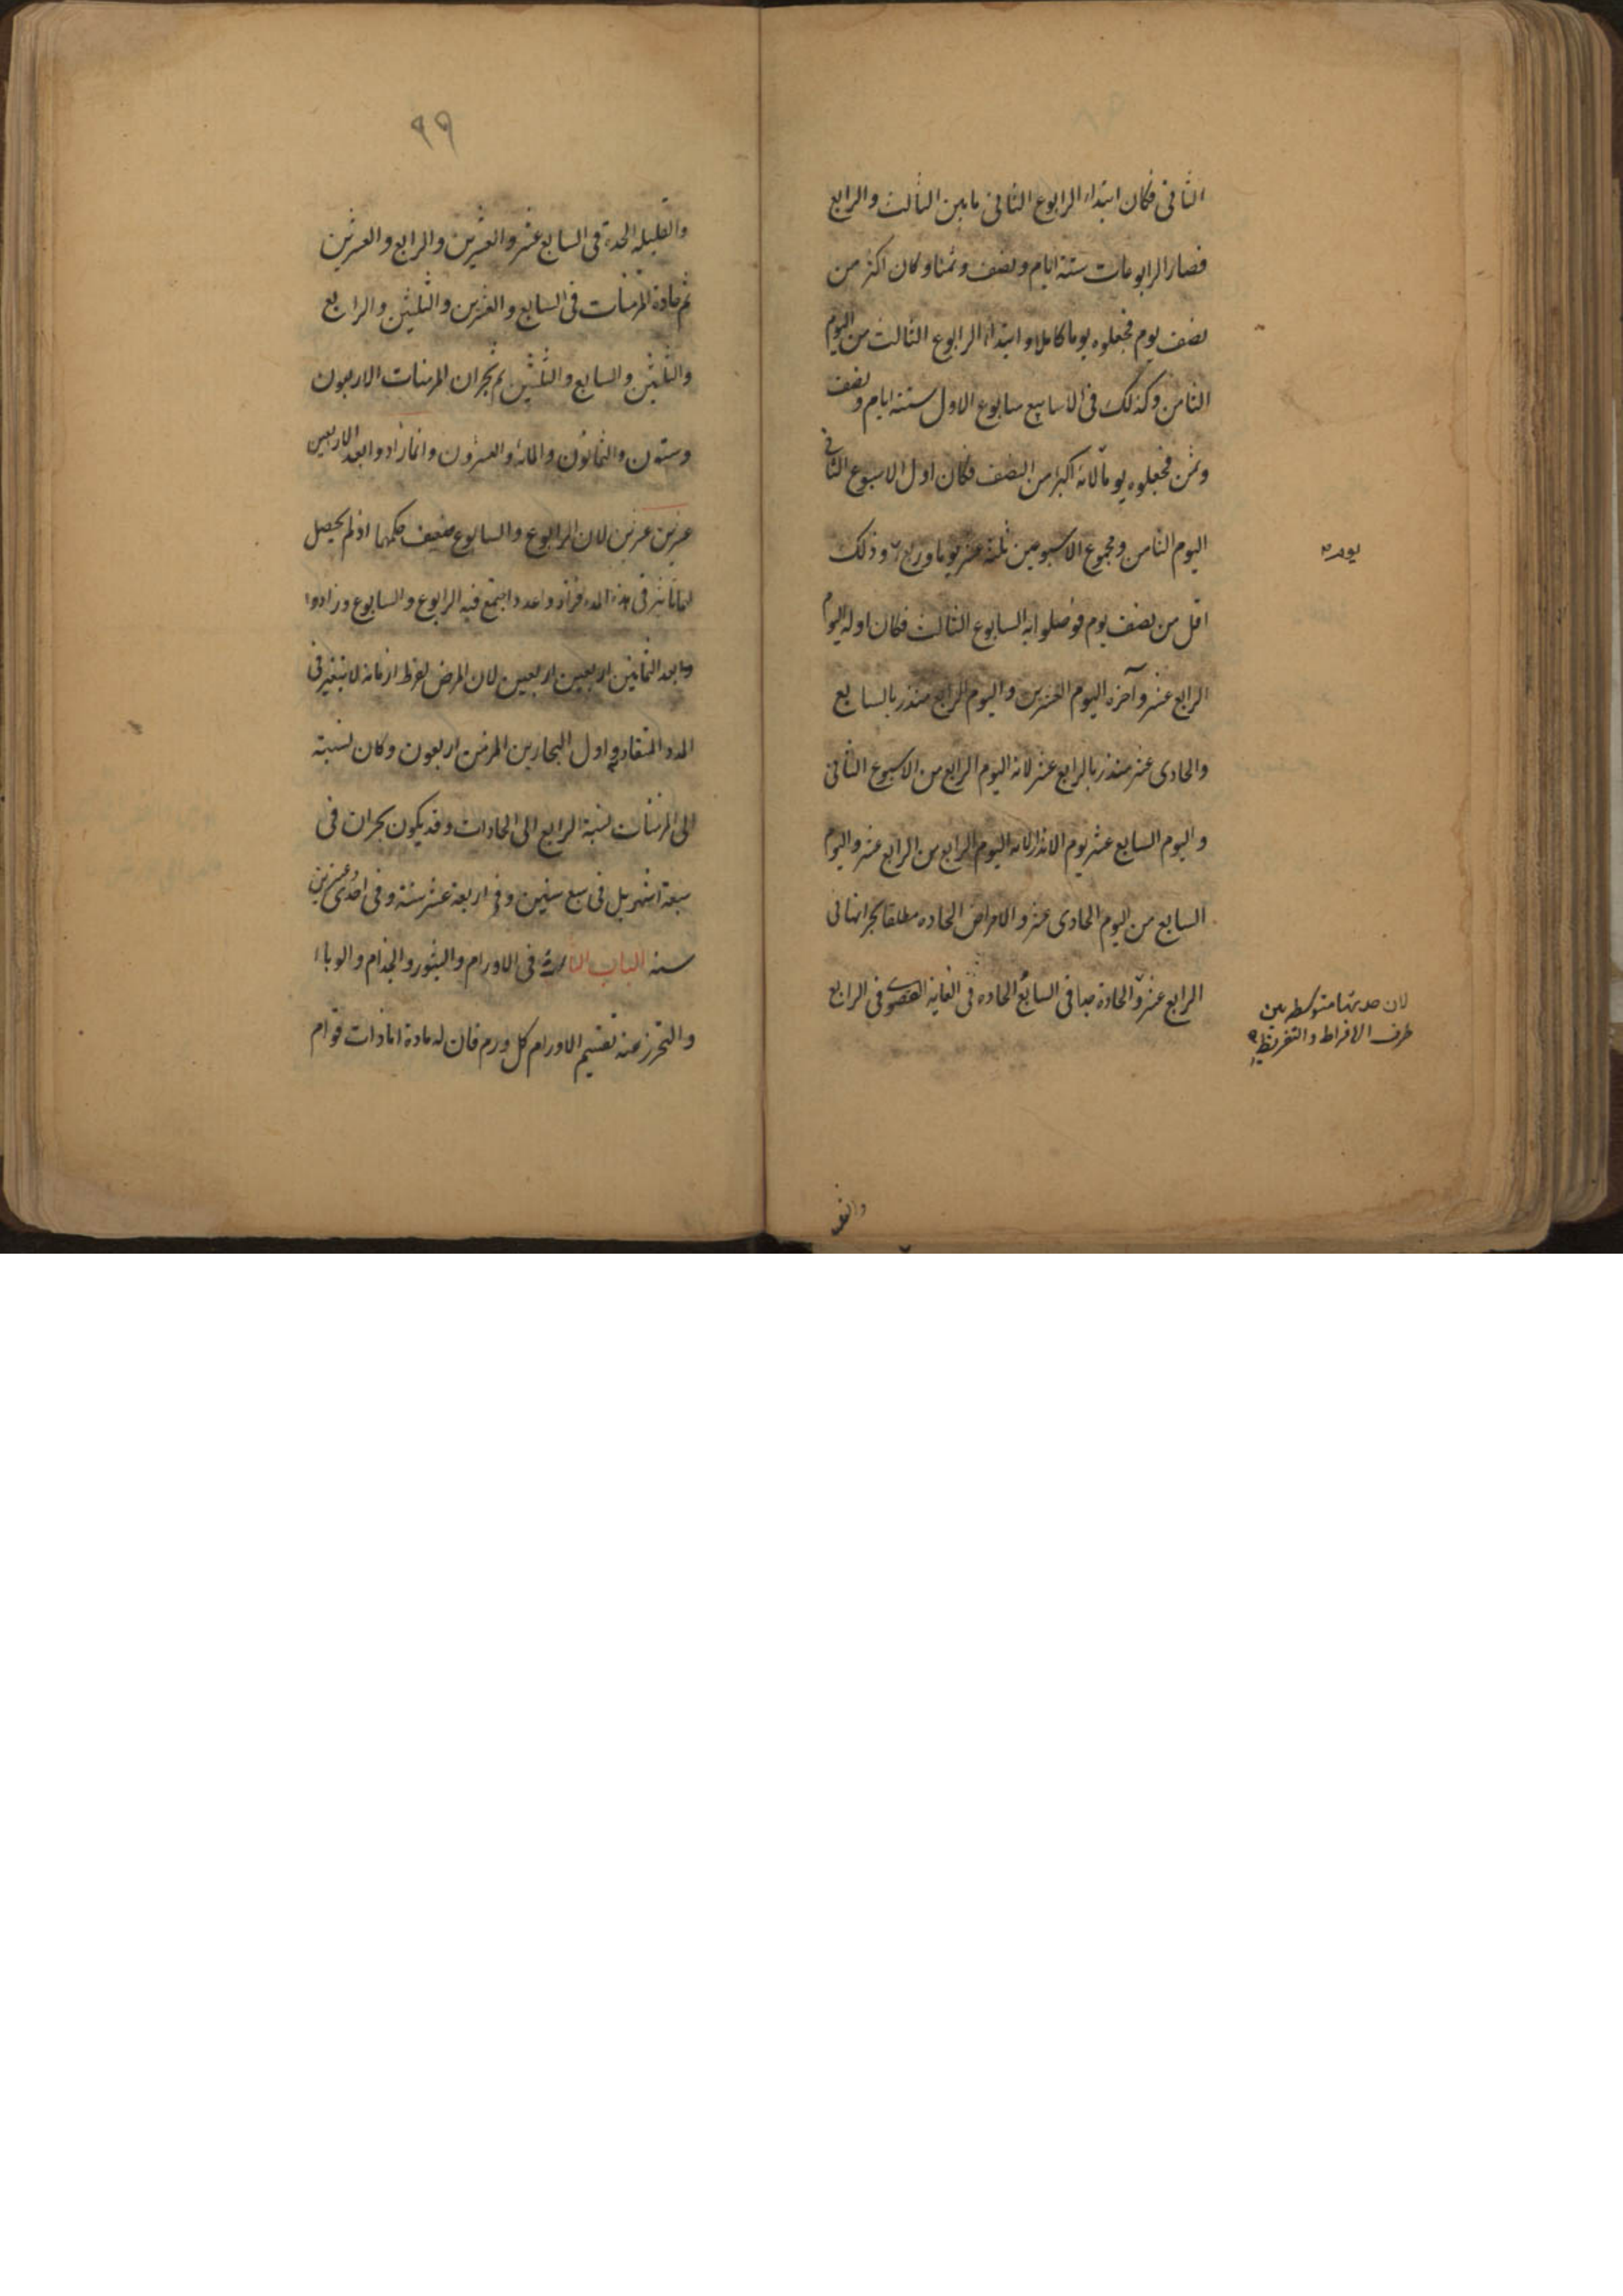 الثانی فکان ابتداء الرابوع الثانی مابین الثالث والرابع
فصار الرابوعات ستة ایام ونصف وثمنا وکان اکثر من
نصف یوم فجعلوه یوما کاملا وابتداء الرابوع الثالث من الیوم
الثامن وکذلک فی الاسابیع سابوع الاول ستة ایام ونصف
وثمن فجعلوه یوما لانه اکبر من النصف فکان اول الاسبوع الثانی
الیوم الثامن ومجموع الاسبوعین ثلثة عشر یوما وربع وذلک
یوم
اقل من نصف یوم فوصلوا به السابوع الثالث فکان اوله الیوم
الرابع عشر وآخره الیوم العشرین والیوم الرابع منذر بالسابع
والحادی عشر منذر بالرابع عشر لانه الیوم الرابع من الاسبوع الثانی
والیوم السابع عشر یوم الانذار لانه الیوم الرابع من الرابع عشر والیوم
السابع من الیوم الحادی عشر والامراض الحاده مطلقا بحرانها فی
الرابع عشر والحادة جدا فی السابع الحاده فی الغایة القصوی فی الرابع
لان حدتها متوسطه بین
طرف الافراط والتفریط
والقلـ
٩٩
والقلیلة الحدة فی السابع عشر والعشرین والرابع والعشرین
ثم حادة المزمنات فی السابع والعشرین والثلثین والرابع
والثلثین والسابع والثلثین ثم بحران المزمنات الاربعون
وستون والثمانون والمائة والعشرون وانما زادوا بعد الاربعین
عشرین عشرین لان الرابوع والسابوع ضعیف حکمهما اذ لم یحصل
لهما تاثیر فی هذه المدة فزادوا عددا یجتمع فیه الرابوع والسابوع وزادوا
ما بعد الثمانین اربعین اربعین لان المرض لفرط ازمانه لا یتغیر فی
المدد المتقاربة واول البحارین المزمن اربعون وکان نسبته
الی المزمنات نسبة الرابع الی الحادات وقد یکون بحران فی
سبعة اشهر بل فی سبع سنین وفی اربعة عشر سنة وفی احدی وعشرین
سنه الباب الثالث فی الاورام والبثور والجذام والوباء
والتحرز عنه تقسیم الاورام کل ورم فان له مادة اما ذات قوام